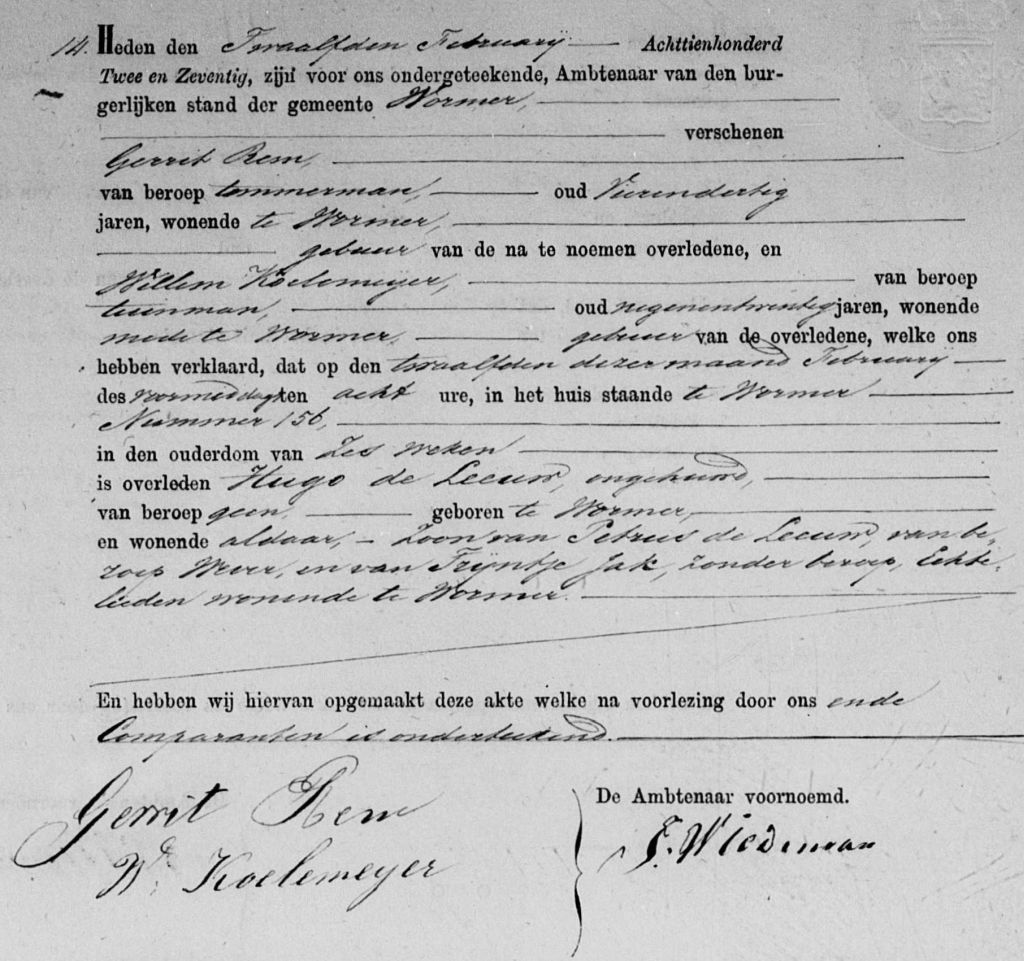 14. Heden den Twaalfden February Achttienhonderd
Twee en Zeventig, zijn voor ons ondergeteekende, Ambtenaar van den bur-
gerlijken stand der gemeente Wormer,
verschenen
Gerrit Rem,
van beroep timmerman, oud Vierendertig
jaren, wonende te Wormer,
gebuur van de na te noemen overledene, en
Willem Koelemeyer, van beroep
tuinman, oud negenentwintig jaren, wonende
mede te Wormer, gebuur van de overledene, welke ons
hebben verklaard, dat op den twaalfden dezer maand February
des voormiddags ten acht ure, in het huis staande te Wormer
Nummer 156,
in den ouderdom van Zes weken
is overleden Hugo de Leeuw, ongehuwd,
van beroep geen, geboren te Wormer,
en wonende aldaar, - Zoon van Petrus de Leeuw, van be-
roep Wever, en van Trijntje Jak, zonder beroep, Echte-
lieden wonende te Wormer.
En hebben wij hiervan opgemaakt deze akte welke na voorlezing door ons en de
Comparanten is onderteekend.
Gerrit Rem
De Ambtenaar voornoemd.
Wm Koelemeyer
F. Wiedeman